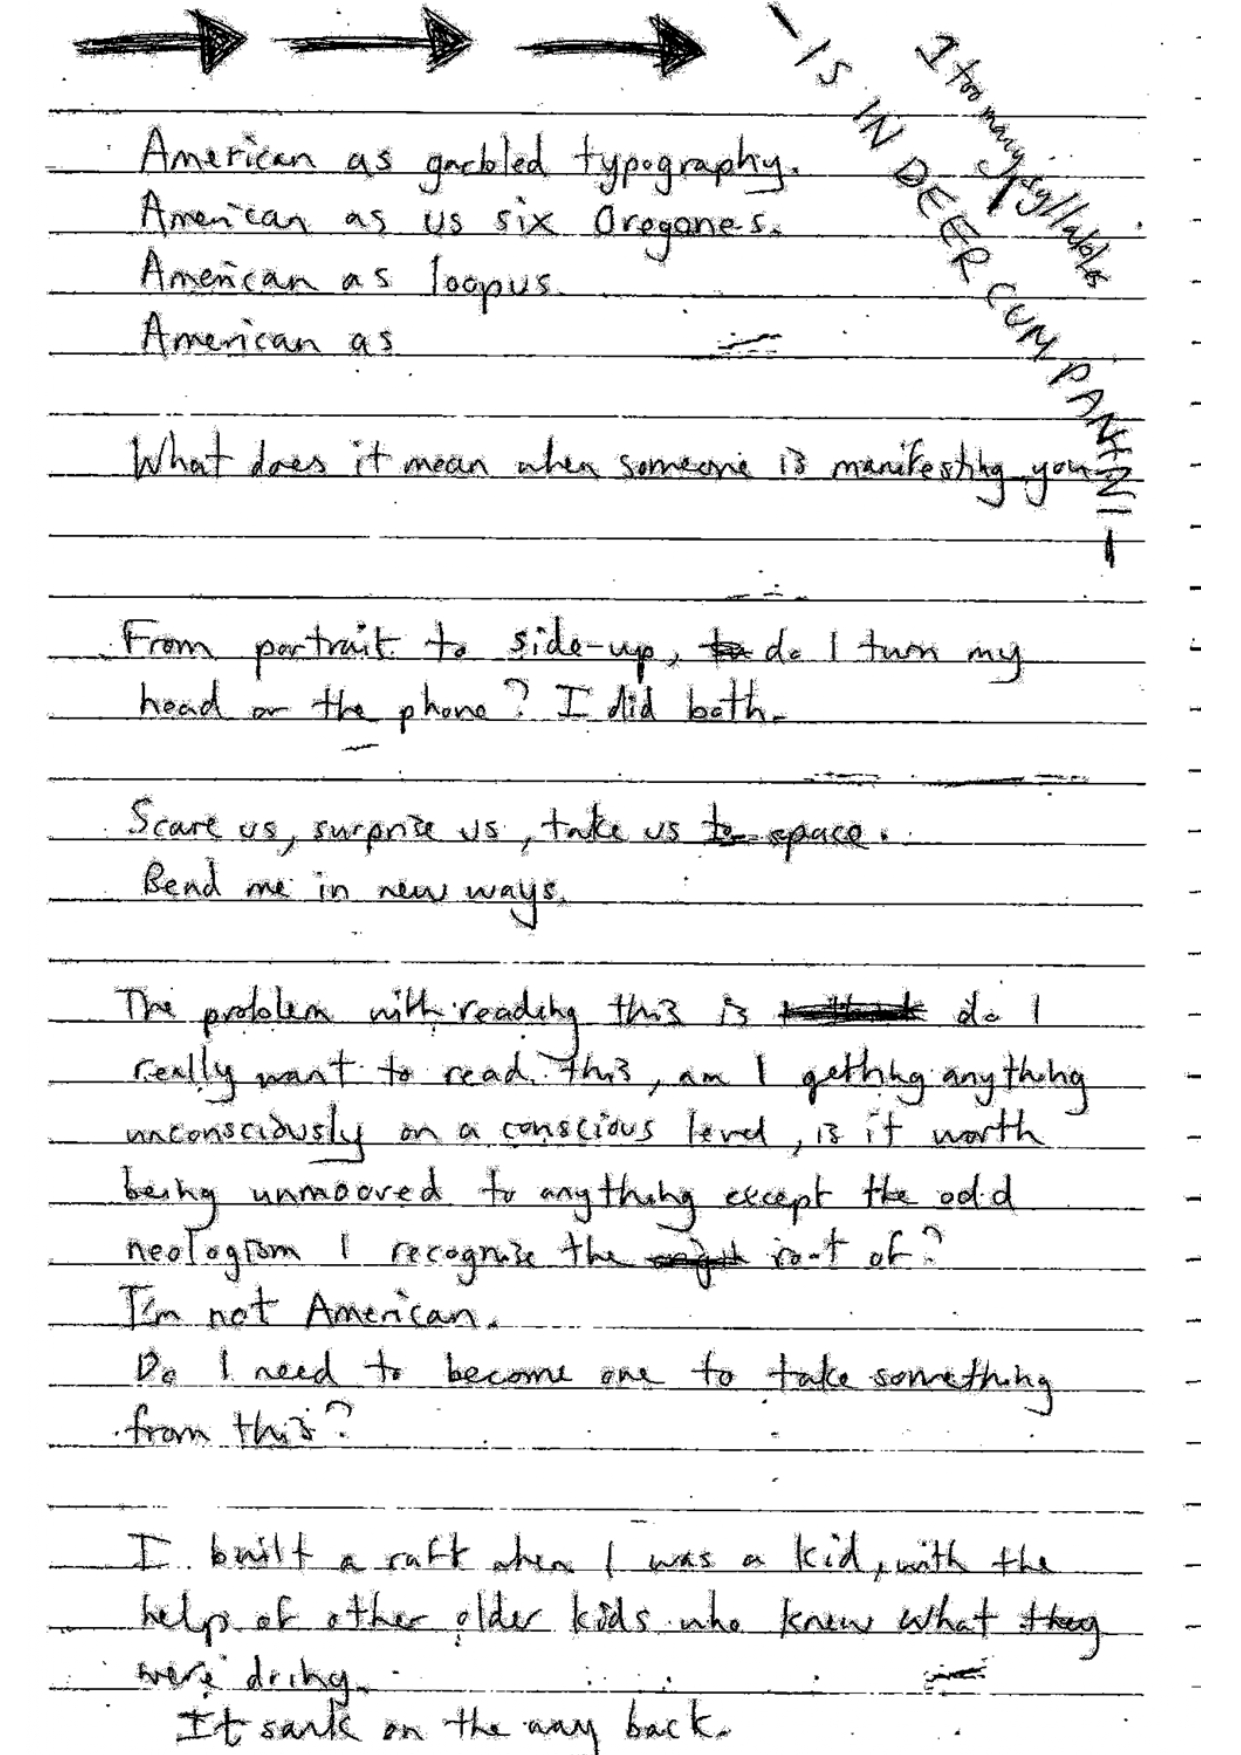 – IS IN DEER CUM PANTNI –
1 too many syllables
American as garbled typography.
American as us six Oregones.
American as loopus.
American as
What does it mean when someone is manifesting you
From portrait to side-up, do I turn my
head or the phone? I did both.
Scare us, surprise us, take us to space.
Bend me in new ways.
The problem with reading this is do I
really want to read this, am I getting anything
unconsciously on a conscious level, is it worth
being unmoored to anything except the odd
neologism I recognise the root of?
I'm not American.
Do I need to become one to take something
from this?
I built a raft when I was a kid, with the
help of other older kids who knew what they
were doing.
It sank on the way back.